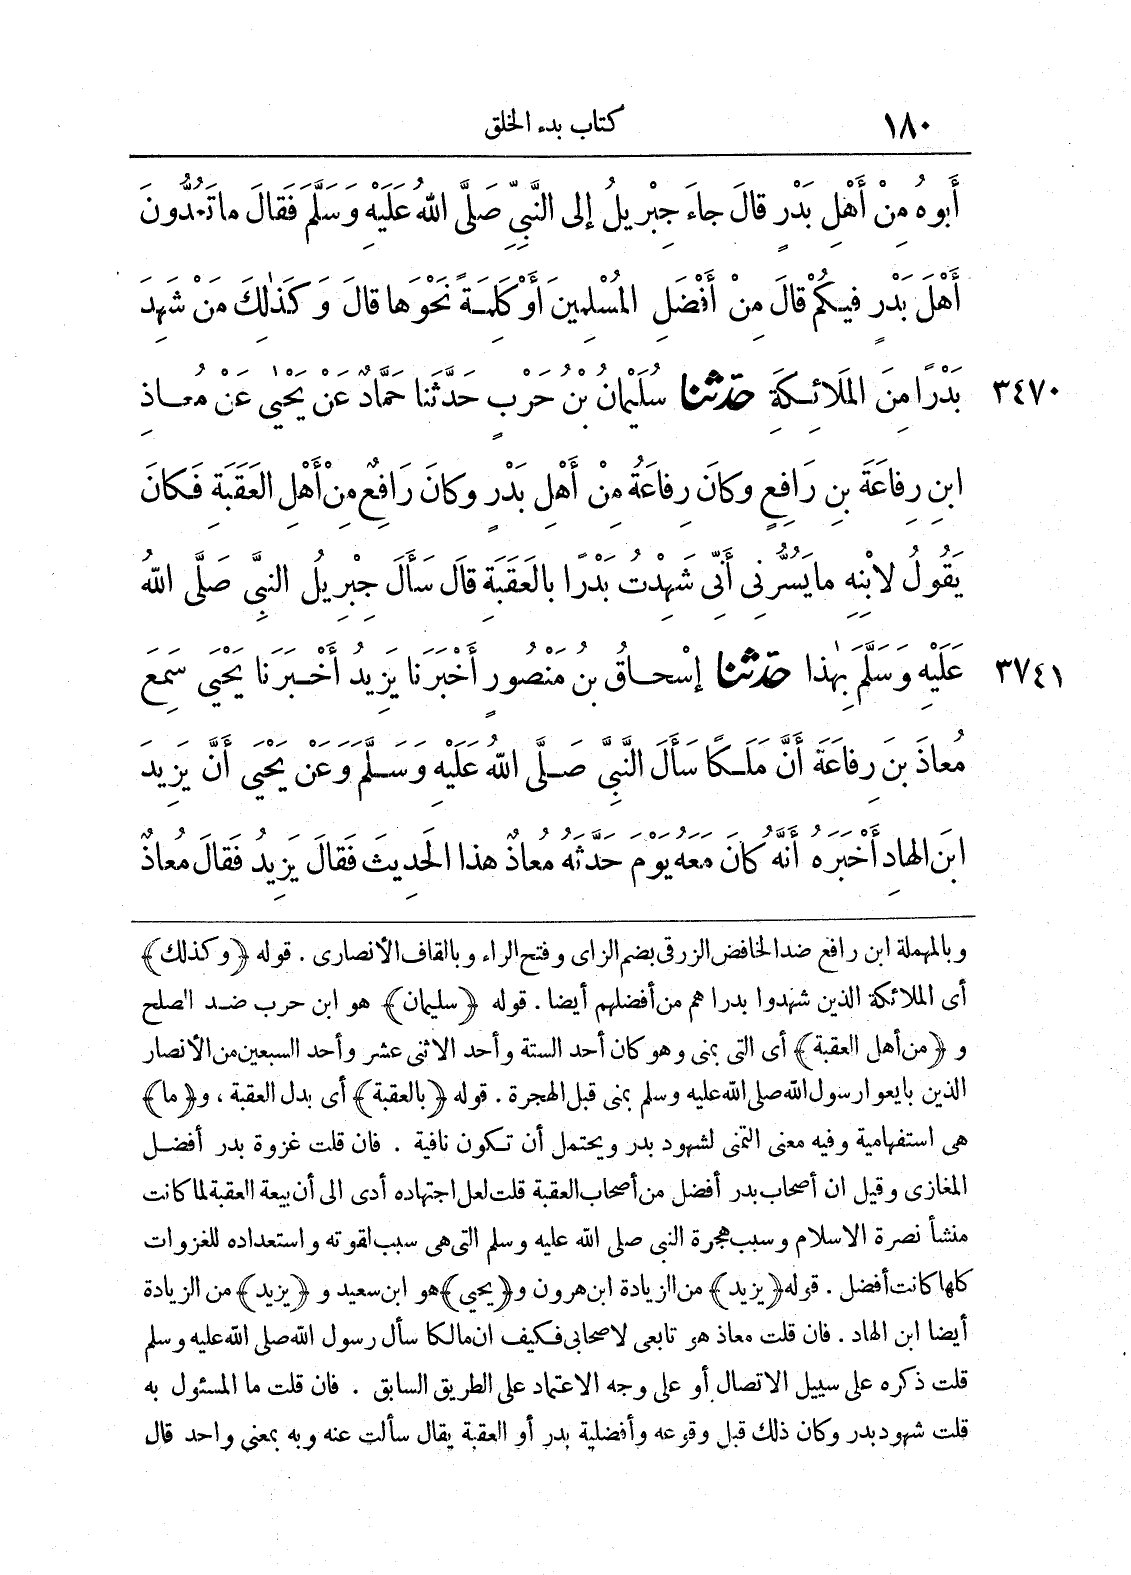 ١٨٠ كتاب بدء الخلق
أَبوهُ مِنْ أَهْلِ بَدْرٍ قالَ جاءَ جِبْرِيلُ إلى النَّبِيِّ صَلَّى اللهُ عَلَيْهِ وَسَلَّمَ فَقالَ ما تَعُدُّونَ
أَهْلَ بَدْرٍ فيكُمْ قالَ مِنْ أَفْضَلِ المُسْلِمِينَ أَوْ كَلِمَةً نَحْوَها قالَ وَكَذٰلِكَ مَنْ شَهِدَ
٣٤٧٠ بَدْرًا مِنَ المَلَائِكَةِ حَدَّثَنا سُلَيْمانُ بْنُ حَرْبٍ حَدَّثَنا حَمَّادٌ عَنْ يَحْيٰى عَنْ مُعاذِ
ابنِ رِفاعَةَ بنِ رَافِعٍ وكانَ رِفاعَةُ مِنْ أَهْلِ بَدْرٍ وكانَ رَافِعٌ مِنْ أَهْلِ العَقَبَةِ فَكانَ
يَقُولُ لابْنِهِ ما يَسُرُّنى أَنِّى شَهِدْتُ بَدْرًا بالعَقَبَةِ قالَ سَأَلَ جِبْرِيلُ النبيَّ صَلَّى اللهُ
٣٧٤١ عَلَيْهِ وَسَلَّمَ بِهٰذا حَدَّثَنا إسْحاقُ بنُ مَنْصُورٍ أَخْبَرَنا يَزِيدُ أَخْبَرَنا يَحْيَى سَمِعَ
مُعاذَ بنَ رِفاعَةَ أَنَّ مَلَكًا سَأَلَ النَّبِيَّ صَلَّى اللهُ عَلَيْهِ وَسَلَّمَ وَعَنْ يَحْيَى أَنَّ يَزِيدَ
ابنَ الهادِ أَخْبَرَهُ أَنَّهُ كانَ مَعَهُ يَوْمَ حَدَّثَهُ مُعاذٌ هذا الحَدِيثَ فَقالَ يَزِيدُ فَقالَ مُعاذٌ
وبالمهملة ابن رافع ضد الخافض الزرقى بضم الزاى وفتح الراء وبالقاف الأنصارى . قوله ﴿وكذلك﴾
أى الملائكة الذين شهدوا بدرا هم من أفضلهم أيضا . قوله ﴿سليمان﴾ هو ابن حرب ضد الصلح
و ﴿من أهل العقبة﴾ أى التى بمنى وهو كان أحد الستة وأحد الاثنى عشر وأحد السبعين من الأنصار
الذين بايعوا رسول الله صلى الله عليه وسلم بمنى قبل الهجرة . قوله ﴿بالعقبة﴾ أى بدل العقبة ، و﴿ما﴾
هى استفهامية وفيه معنى التمنى لشهود بدر ويحتمل أن تكون نافية . فان قلت غزوة بدر أفضل
المغازى وقيل ان أصحاب بدر أفضل من أصحاب العقبة قلت لعل اجتهاده أدى الى أن بيعة العقبة لما كانت
منشأ نصرة الاسلام وسبب هجرة النبى صلى الله عليه وسلم التى هى سبب لقوته واستعداده للغزوات
كلها كانت أفضل . قوله ﴿يزيد﴾ من الزيادة ابن هرون و﴿يحيى﴾ هو ابن سعيد و ﴿يزيد﴾ من الزيادة
أيضا ابن الهاد . فان قلت معاذ هو تابعى لا صحابى فكيف ان مالكا سأل رسول الله صلى الله عليه وسلم
قلت ذكره على سبيل الاتصال أو على وجه الاعتماد على الطريق السابق . فان قلت ما المسئول به
قلت شهود بدر وكان ذلك قبل وقوعه وأفضلية بدر أو العقبة يقال سألت عنه وبه بمعنى واحد قال